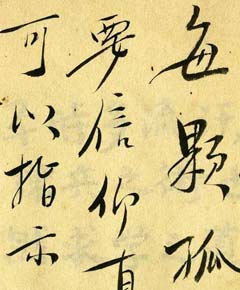 每顆孤
要信仰直
可以指示